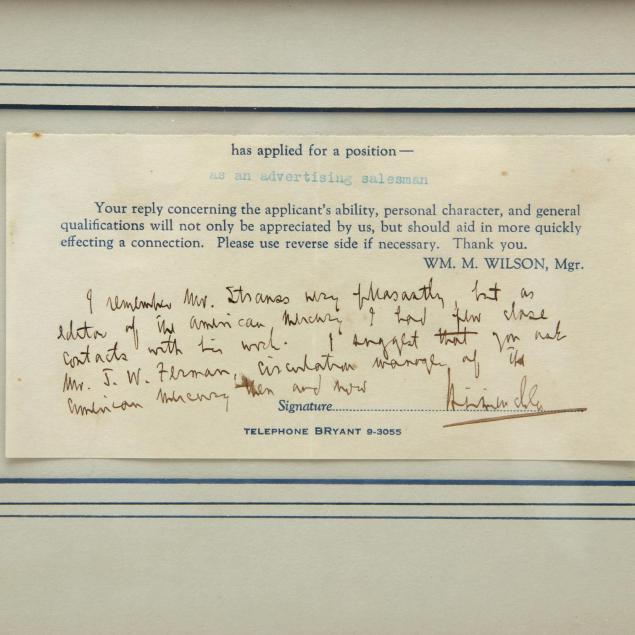 has applied for a position—
as an advertising salesman
Your reply concerning the applicant's ability, personal character, and general
qualifications will not only be appreciated by us, but should aid in more quickly
effecting a connection. Please use reverse side if necessary. Thank you.
WM. M. WILSON, Mgr.
I remember Mr. Strauss very pleasantly, but as
editor of The American Mercury I had few close
contacts with his work. I suggest that you ask
Mr. J. W. Ferman, circulation manager of The
American Mercury then and now
Signature
TELEPHONE BRYANT 9-3055